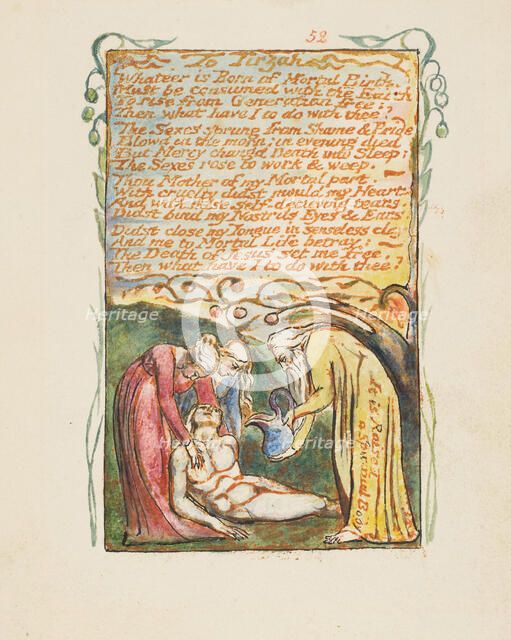 52
To Tirzah
Whateer is Born of Mortal Birth,
Must be consumed with the Earth
To rise from Generation free;
Then what have I to do with thee?
The Sexes sprung from Shame & Pride
Blowd in the morn: in evening died
But Mercy changd Death into Sleep;
The Sexes rose to work & weep.
Thou Mother of my Mortal part.
With cruelty didst mould my Heart.
And with false self-decieving tears.
Didst bind my Nostrils Eyes & Ears.
Didst close my Tongue in senseless clay
And me to Mortal Life betray:
The Death of Jesus set me free.
Then what have I to do with thee?
It is Raised
a Spiritual Body
Heritage
Heritage
Heritage
Heritage
Heritage
Heritage